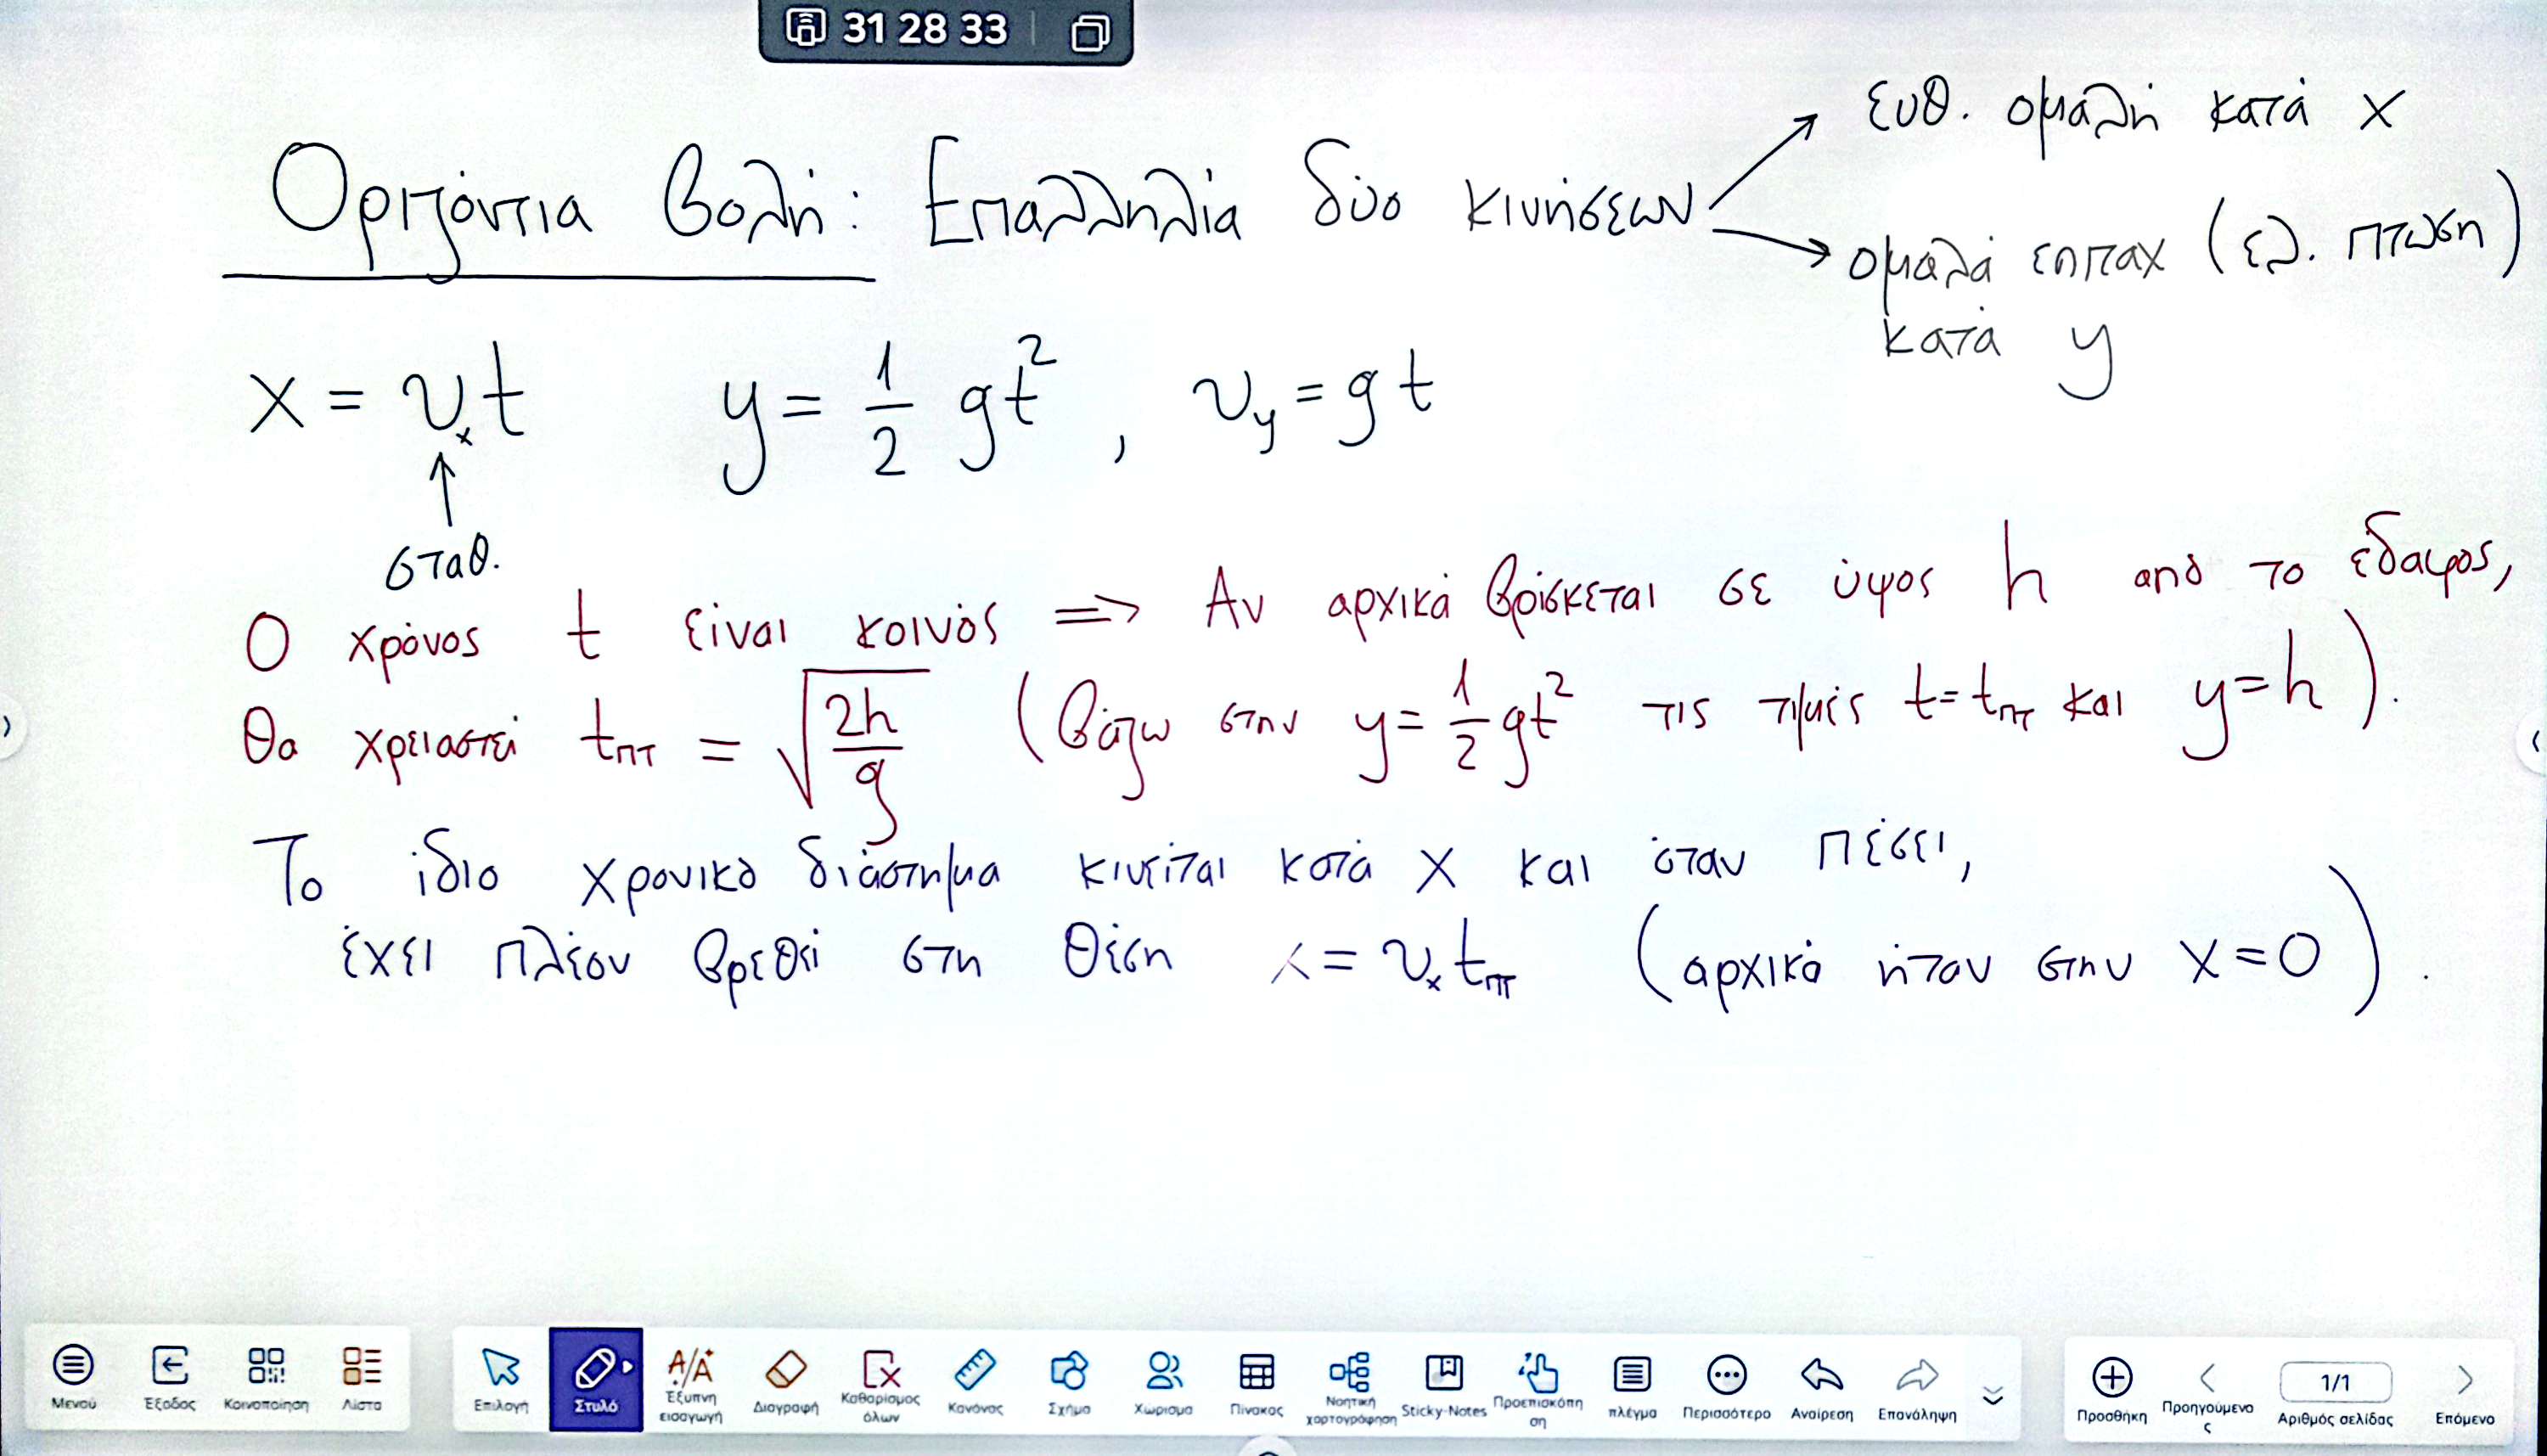 31 28 33
Οριζόντια βολή: Επαλληλία δύο κινήσεων
ευθ. ομαλή κατά x
ομαλά επιταχ (ελ. πτώση)
κατά y
x = υₓt    y = 1/2 gt², υ_y = gt
↑
σταθ.
Ο χρόνος t είναι κοινός => Αν αρχικά βρίσκεται σε ύψος h από το έδαφος,
θα χρειαστεί t_πτ = √(2h/g) (βάζω στην y = 1/2 gt² τις τιμές t = t_πτ και y = h).
Το ίδιο χρονικό διάστημα κινείται κατά x και όταν πέσει,
έχει πλέον βρεθεί στη θέση x = υₓ t_πτ (αρχικά ήταν στην x = 0).
Μενού Έξοδος Κοινοποίηση Λίστα
Επιλογή Στυλό Έξυπνη εισαγωγή Διαγραφή Καθαρισμος όλων Κανόνας Σχήμα Χωρισμα Πίνακας Νοητική χαρτογράφηση Sticky-Notes Προεπισκόπηση πλέγμα Περισσότερο Αναίρεση Επανάληψη
Προσθήκη Προηγούμενος 1/1 Αριθμός σελίδας Επόμενο